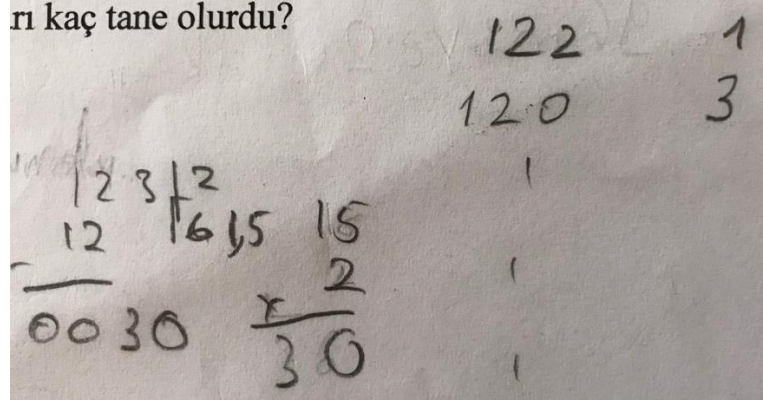 rı kaç tane olurdu?
122 1
120 3
123 2
12 61,5 15
- 2
0030 x
30